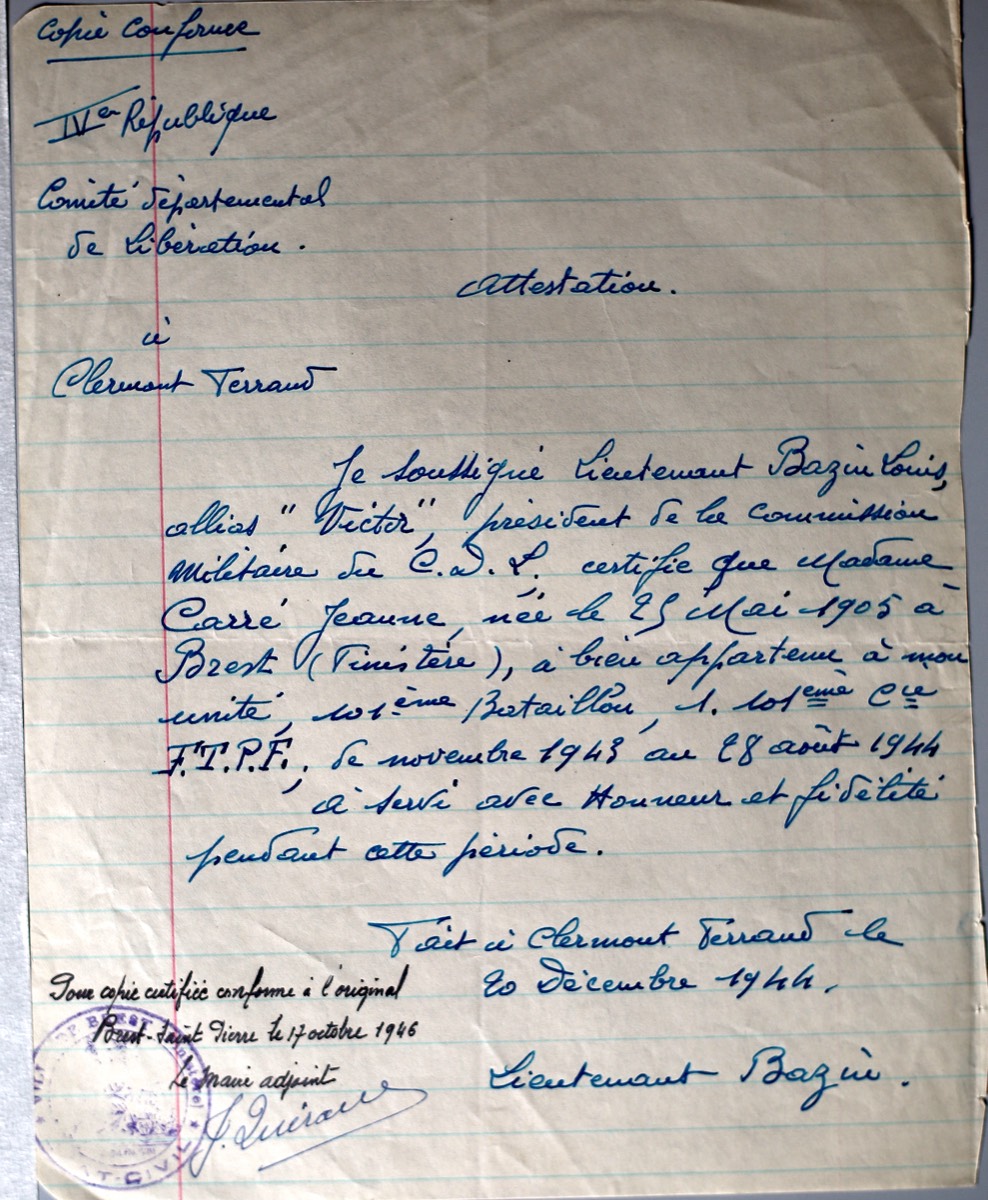 Copie Conforme
IVème République
Comité départemental
de Libération.
Attestation.
à
Clermont Ferrand
Je soussigné Lieutenant Bazin Louis,
allias "Victor", président de la Commission
Militaire du C.D.L., certifie que Madame
Carré Jeanne, née le 25 Mai 1905 à
Brest (Finistère), à bien appartenu à mon
unité, 101ème Bataillon, 1.101ème Cie
F.T.P.F., de novembre 1943 au 28 août 1944
à servi avec Honneur et fidélité
pendant cette période.
Fait à Clermont Ferrand le
20 Décembre 1944.
Pour copie certifiée conforme à l'original
Brest-Saint Pierre le 17 octobre 1946
Le Maire adjoint
Lieutenant Bazin.
BREST
CIVIL